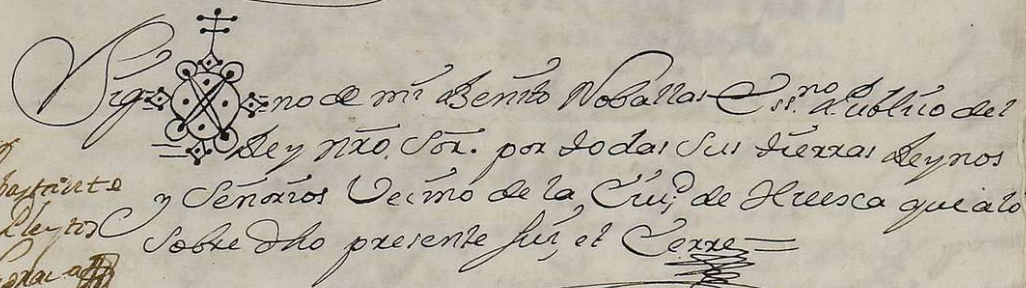 Sig no de mi Benito Noballas Essno. Publico del
Rey nro. Sor. por todas sus tierras Reynos
y Señorios Vecino de la Ciud. de Huesca que a lo
sobre dho presente fui, et Cerre
bastante
Pleytos